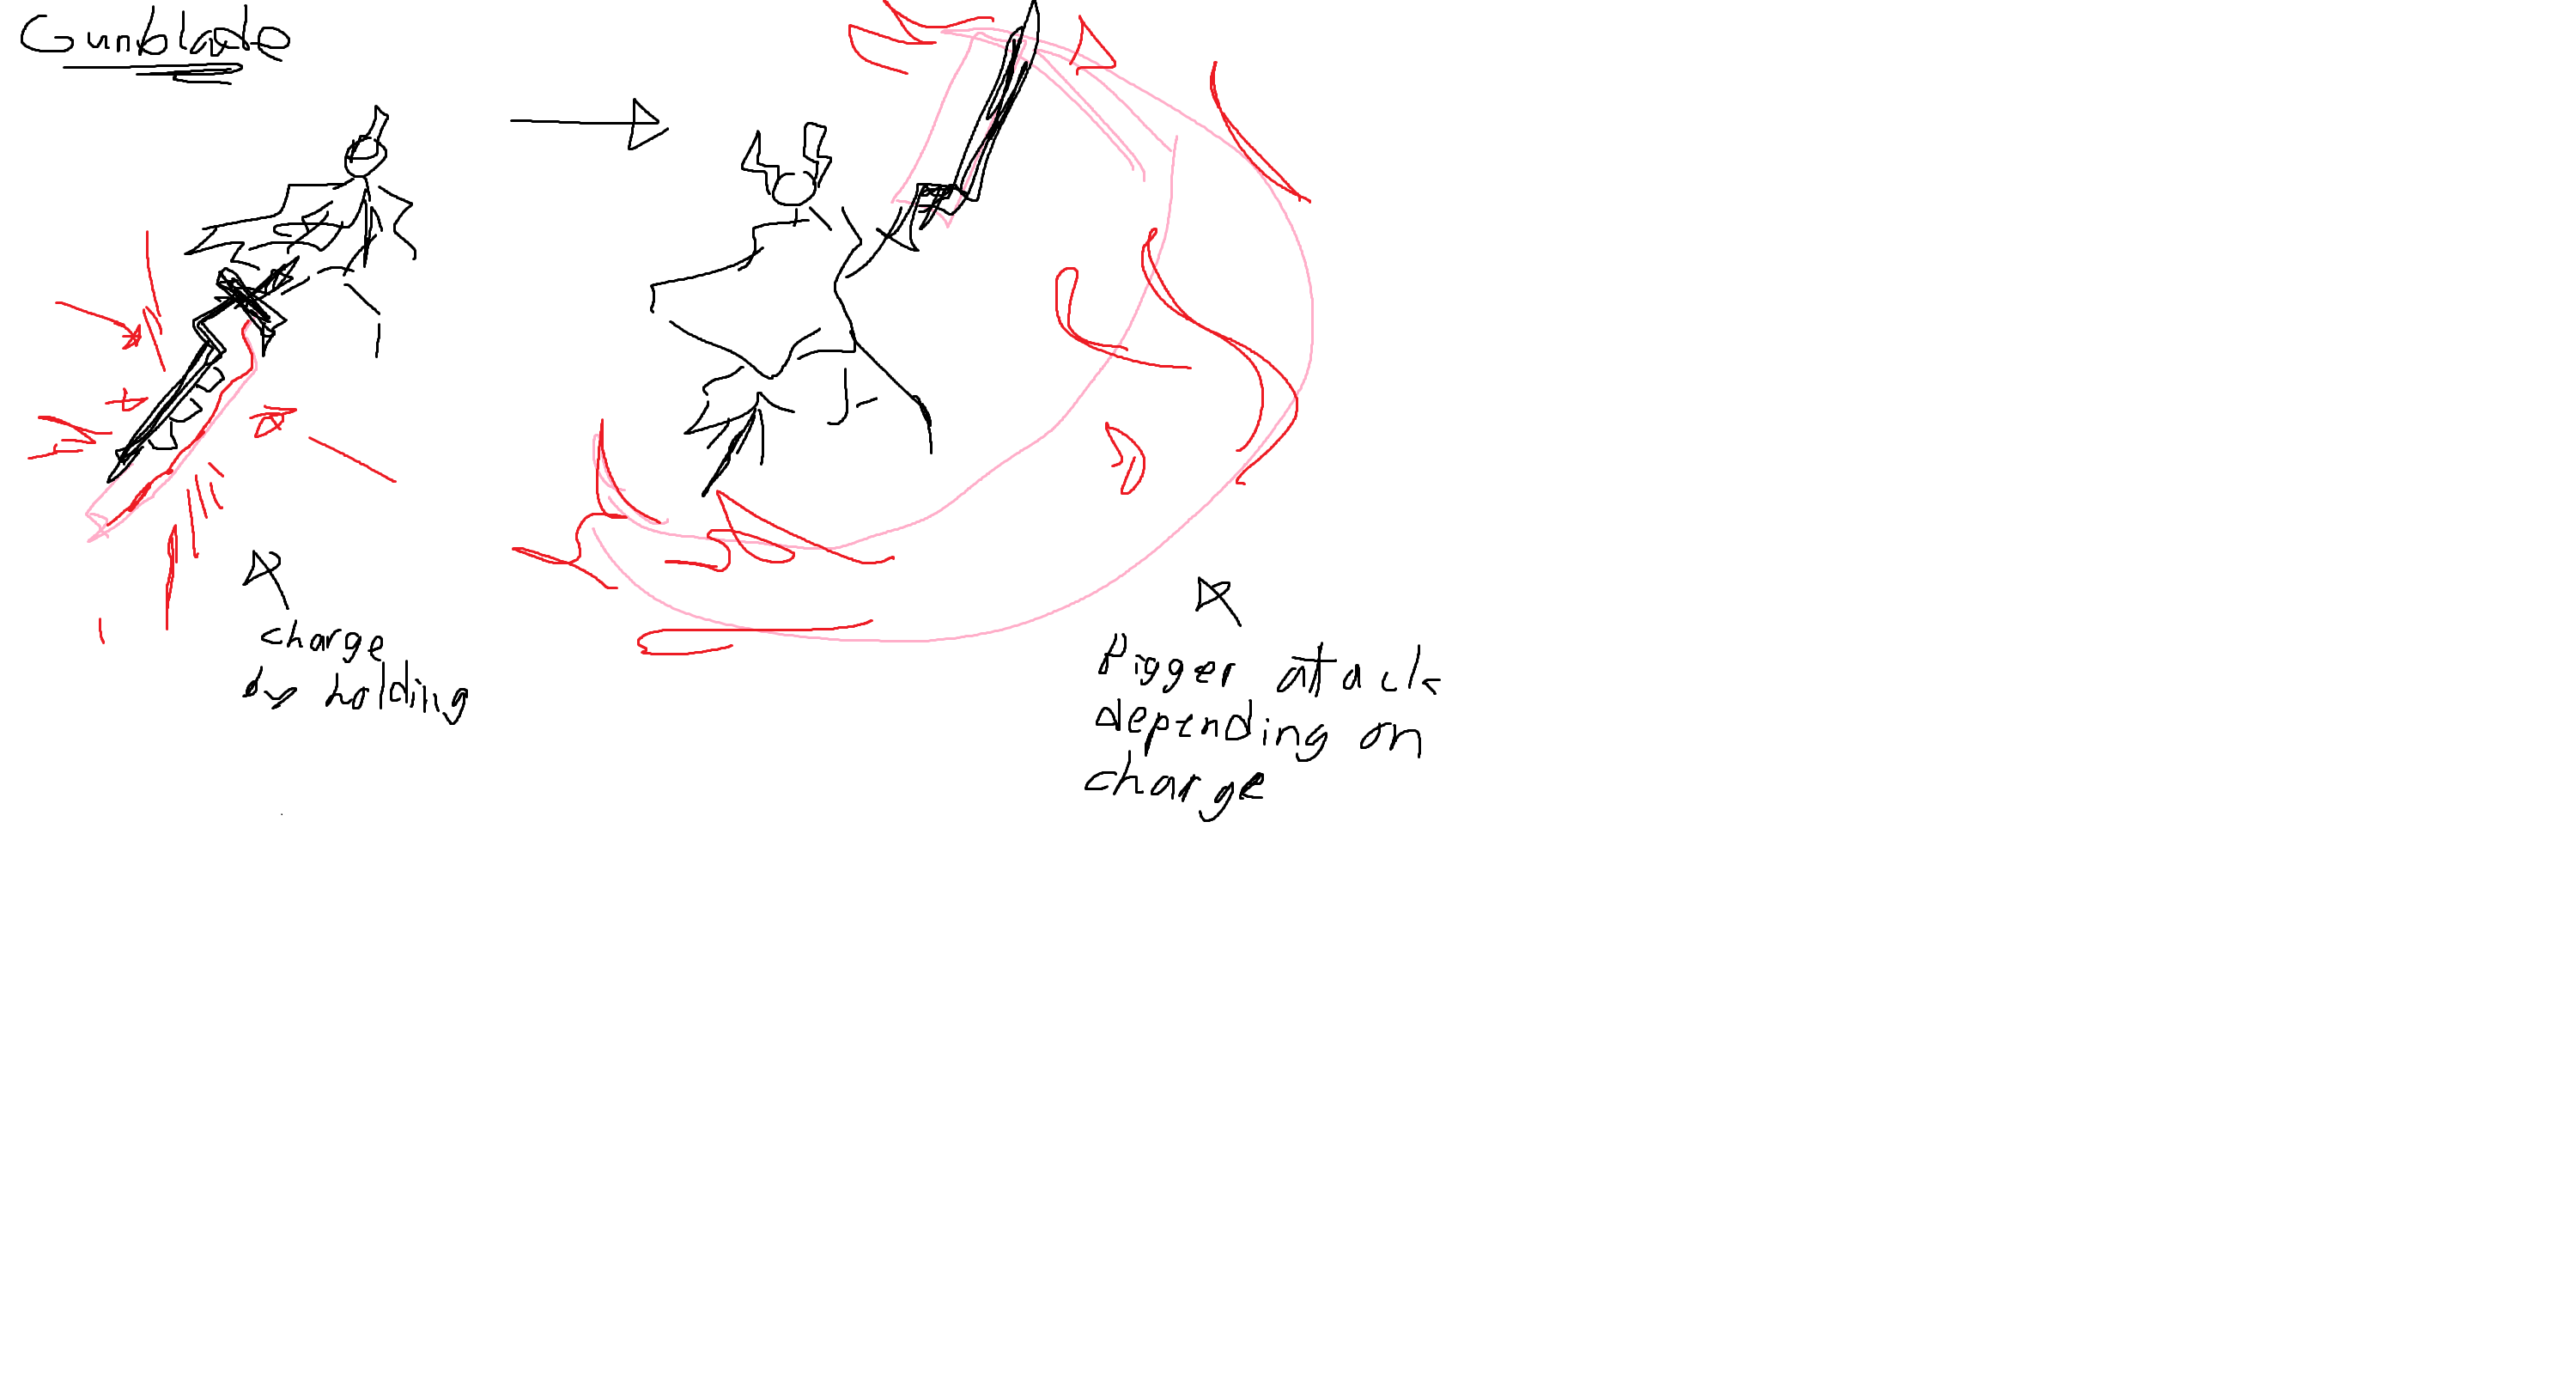 Gunblade
charge
by holding
Bigger atack
depending on
charge